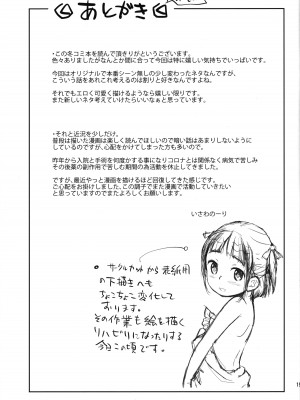 あとがき
・この冬コミ本を読んで頂きありがとうございます。
色々ありましたがなんとか間に合って今回は特に嬉しい気持ちでいっぱいです。
今回はオリジナルで本番シーン無しの少し変わったネタなんですが、
こういうのもあるもんだなあって事に割りとあこれするのが好きなんですよね。
それでもエロく可愛く描けるようなら嬉しい限りです。
また新しいネタ考えていけたらいいなぁと思っています。
・それと近況を少しだけ。
普段は描いた漫画は楽しく読んでほしいので暗い話はあまりしないように
しているのですが、心配をかけてしまった方も多いので。
昨年から入院と手術を何度かする事になりコロナとは関係なく病気で苦しみ
その後薬の副作用で苦しむ期間の為活動を休止してました。
ですが、最近やっと漫画を描けるほど回復してきた感じです。
ご心配をお掛けしました。この調子でまた漫画で活動していきたい
と思っていますのでまたよろしくお願いします。
いさわのーり
・サークルカットから表紙用
の下描きへも
ちょこちょこ変化して
おります。
その作業も絵を描く
リハビリになったりする
今日この頃です。